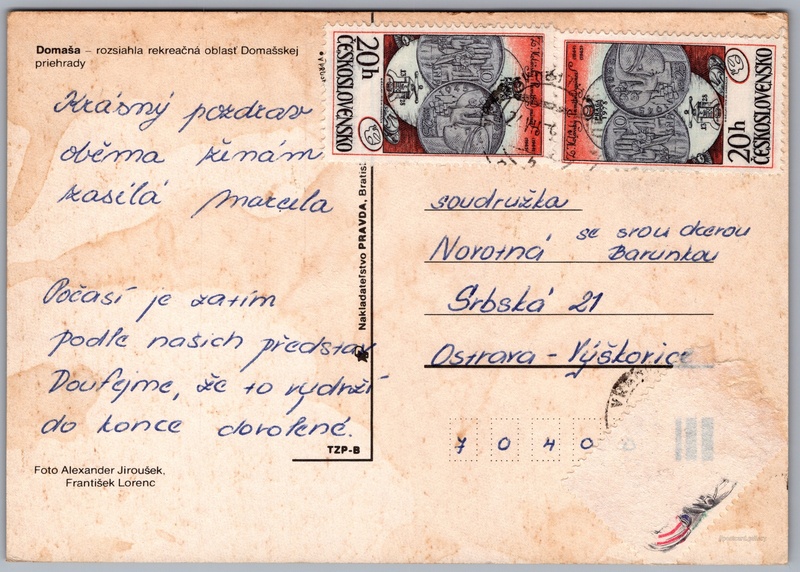 Domaša – rozsiahla rekreačná oblasť Domašskej
priehrady
Krásný pozdrav
oběma ženám
zasílá Marcela
Počasí je zatím
podle našich představ.
Doufejme, že to vydrží
do konce dovolené.
Foto Alexander Jiroušek,
František Lorenc
TZP-B
Nakladateľstvo PRAVDA, Bratis
20h
ČESKOSLOVENSKO
20h
ČESKOSLOVENSKO
soudružka
Novotná se svou dcerou
Barunkou
Srbská 21
Ostrava - Výškovice
7 0 4 0 0